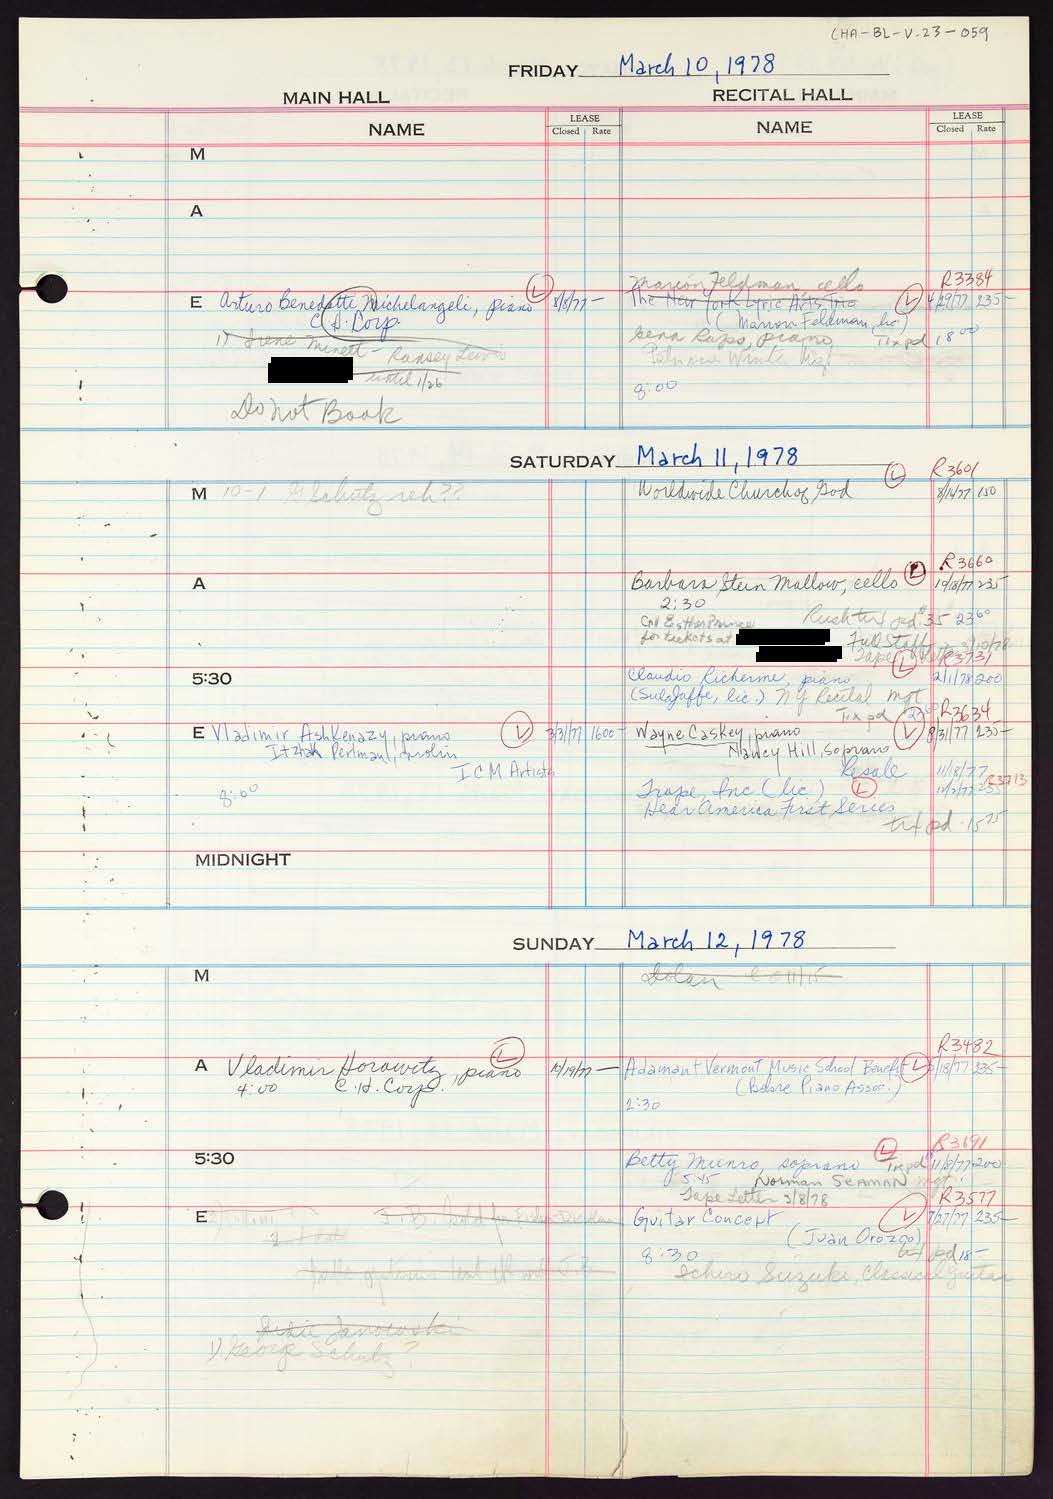 CHA-BL-V.23-059
FRIDAY March 10, 1978
MAIN HALL
RECITAL HALL
NAME
LEASE
Closed Rate
NAME
LEASE
Closed Rate
M
A
R3384
Marion Feldman, cello
E Arturo Benedetti Michelangeli, piano L 8/8/77 —
The New York Lyric Arts Trio L 4/29/77 235—
C.H. Corp
(Marion Feldman, lic)
1) Irene Minett - Ramsey Lewis
piano Tix pd 18 00
until 1/26
8:00
Do Not Book
SATURDAY March 11, 1978
L R3601
M 10-1 G Schutz reh??
Worldwide Church of God 150
R3660
A
Barbara Stein Mallow, cello L 235
2:30
Call Esther Prince
for tickets at
pd 35 23 60
Full Staff
Tape Letter 3/10/78
L R3731
5:30
Claudio Richerme, piano 2/1/78 200
(Sula Jaffe, lic.) NY Recital Mgt
Tix pd
R3634
E Vladimir Ashkenazy, piano L 3/31/77 1600—
Itzhak Perlman, violin
ICM Artists
8:00
Wayne Caskey, piano L 8/31/77 235—
Nancy Hill, soprano
Resale 11/18/77
Trape, Inc (lic) L 235 R3713
Hear America First Series
tix pd 15 75
MIDNIGHT
SUNDAY March 12, 1978
M
Dolan C 11/15
R3482
A Vladimir Horowitz, piano L 10/19/77 —
4:00 C.H. Corp.
Adamant Vermont Music School Benefit L 235—
(Bebre Piano Assoc.)
2:30
R3691
5:30
Betty Munro, soprano L Tix pd 11/8/77 200
5:45 Norman SEAMAN mgt.
Tape Letter 3/8/78
R3577
E
Guitar Concept L 7/27/77 235—
(Juan Orozco)
8:30 tix pd 18—
Ichiro Suzuki, Classical Guitar
Janowski
1) George Schutz?